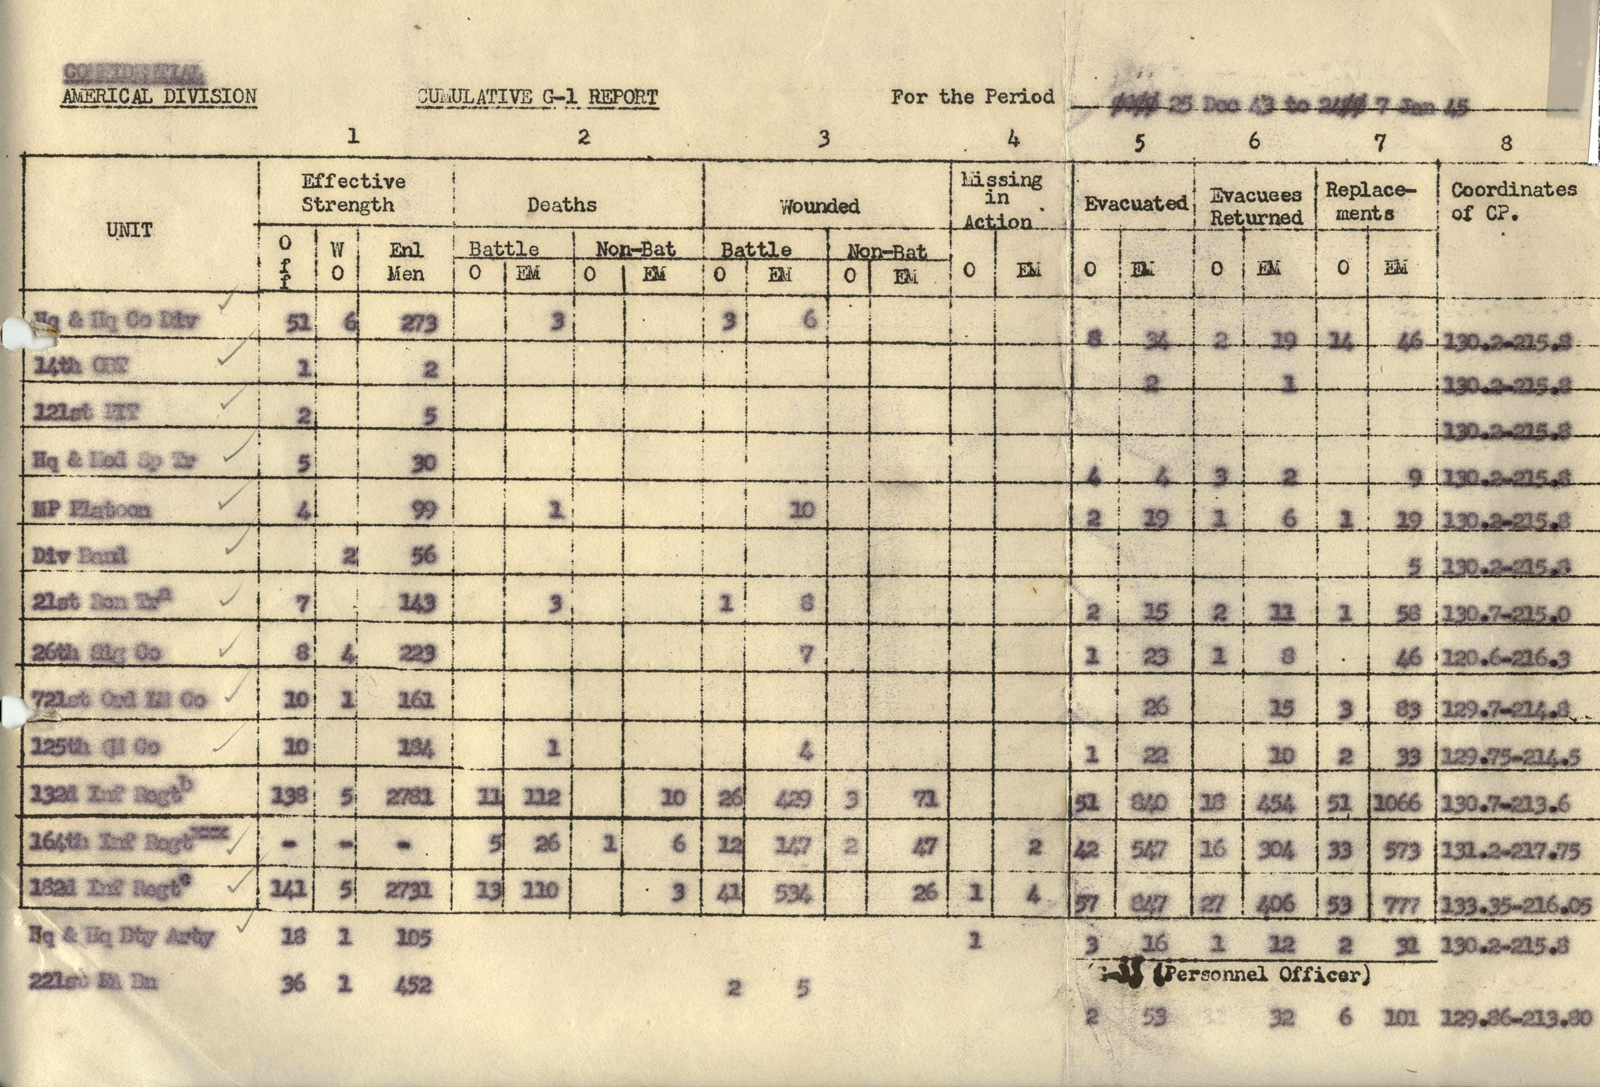 CONFIDENTIAL
AMERICAL DIVISION CUMULATIVE G-1 REPORT For the Period 25 Dec 43 to 7 Jan 45
1 2 3 4 5 6 7 8
UNIT Effective Strength Deaths Wounded Missing in Action Evacuated Evacuees Returned Replace-ments Coordinates of CP.
Off WO Enl Men Battle Non-Bat Battle Non-Bat
O EM O EM O EM O EM O EM O EM O EM O EM
Hq & Hq Co Div 51 6 273 3 3 6 8 34 2 19 14 46 130.2-215.8
14th 1 2 2 1 130.2-215.8
121st 2 5 130.2-215.8
Hq & Med Sp Tr 5 30 4 4 3 2 9 130.2-215.8
MP Platoon 4 99 1 10 2 19 1 6 1 19 130.2-215.8
Div Band 2 56 5 130.2-215.8
21st Rcn Tr 7 143 3 1 8 2 15 2 11 1 58 130.7-215.0
26th Sig Co 8 4 223 7 1 23 1 8 46 120.6-216.3
721st Ord LM Co 10 1 161 26 15 3 83 129.7-214.8
125th QM Co 10 184 1 4 1 22 10 2 33 129.75-214.5
132d Inf Regt b 138 5 2781 11 112 10 26 429 3 71 51 840 18 454 51 1066 130.7-213.6
164th Inf Regt xxx - - - 5 26 1 6 12 147 2 47 2 42 547 16 304 33 573 131.2-217.75
182d Inf Regt 141 5 2731 13 110 3 41 534 26 1 4 57 847 27 406 53 777 133.35-216.05
Hq & Hq Bty Arty 18 1 105 1 3 16 1 12 2 31 130.2-215.8
(Personnel Officer)
221st FA Bn 36 1 452 2 5 2 53 32 6 101 129.86-213.80